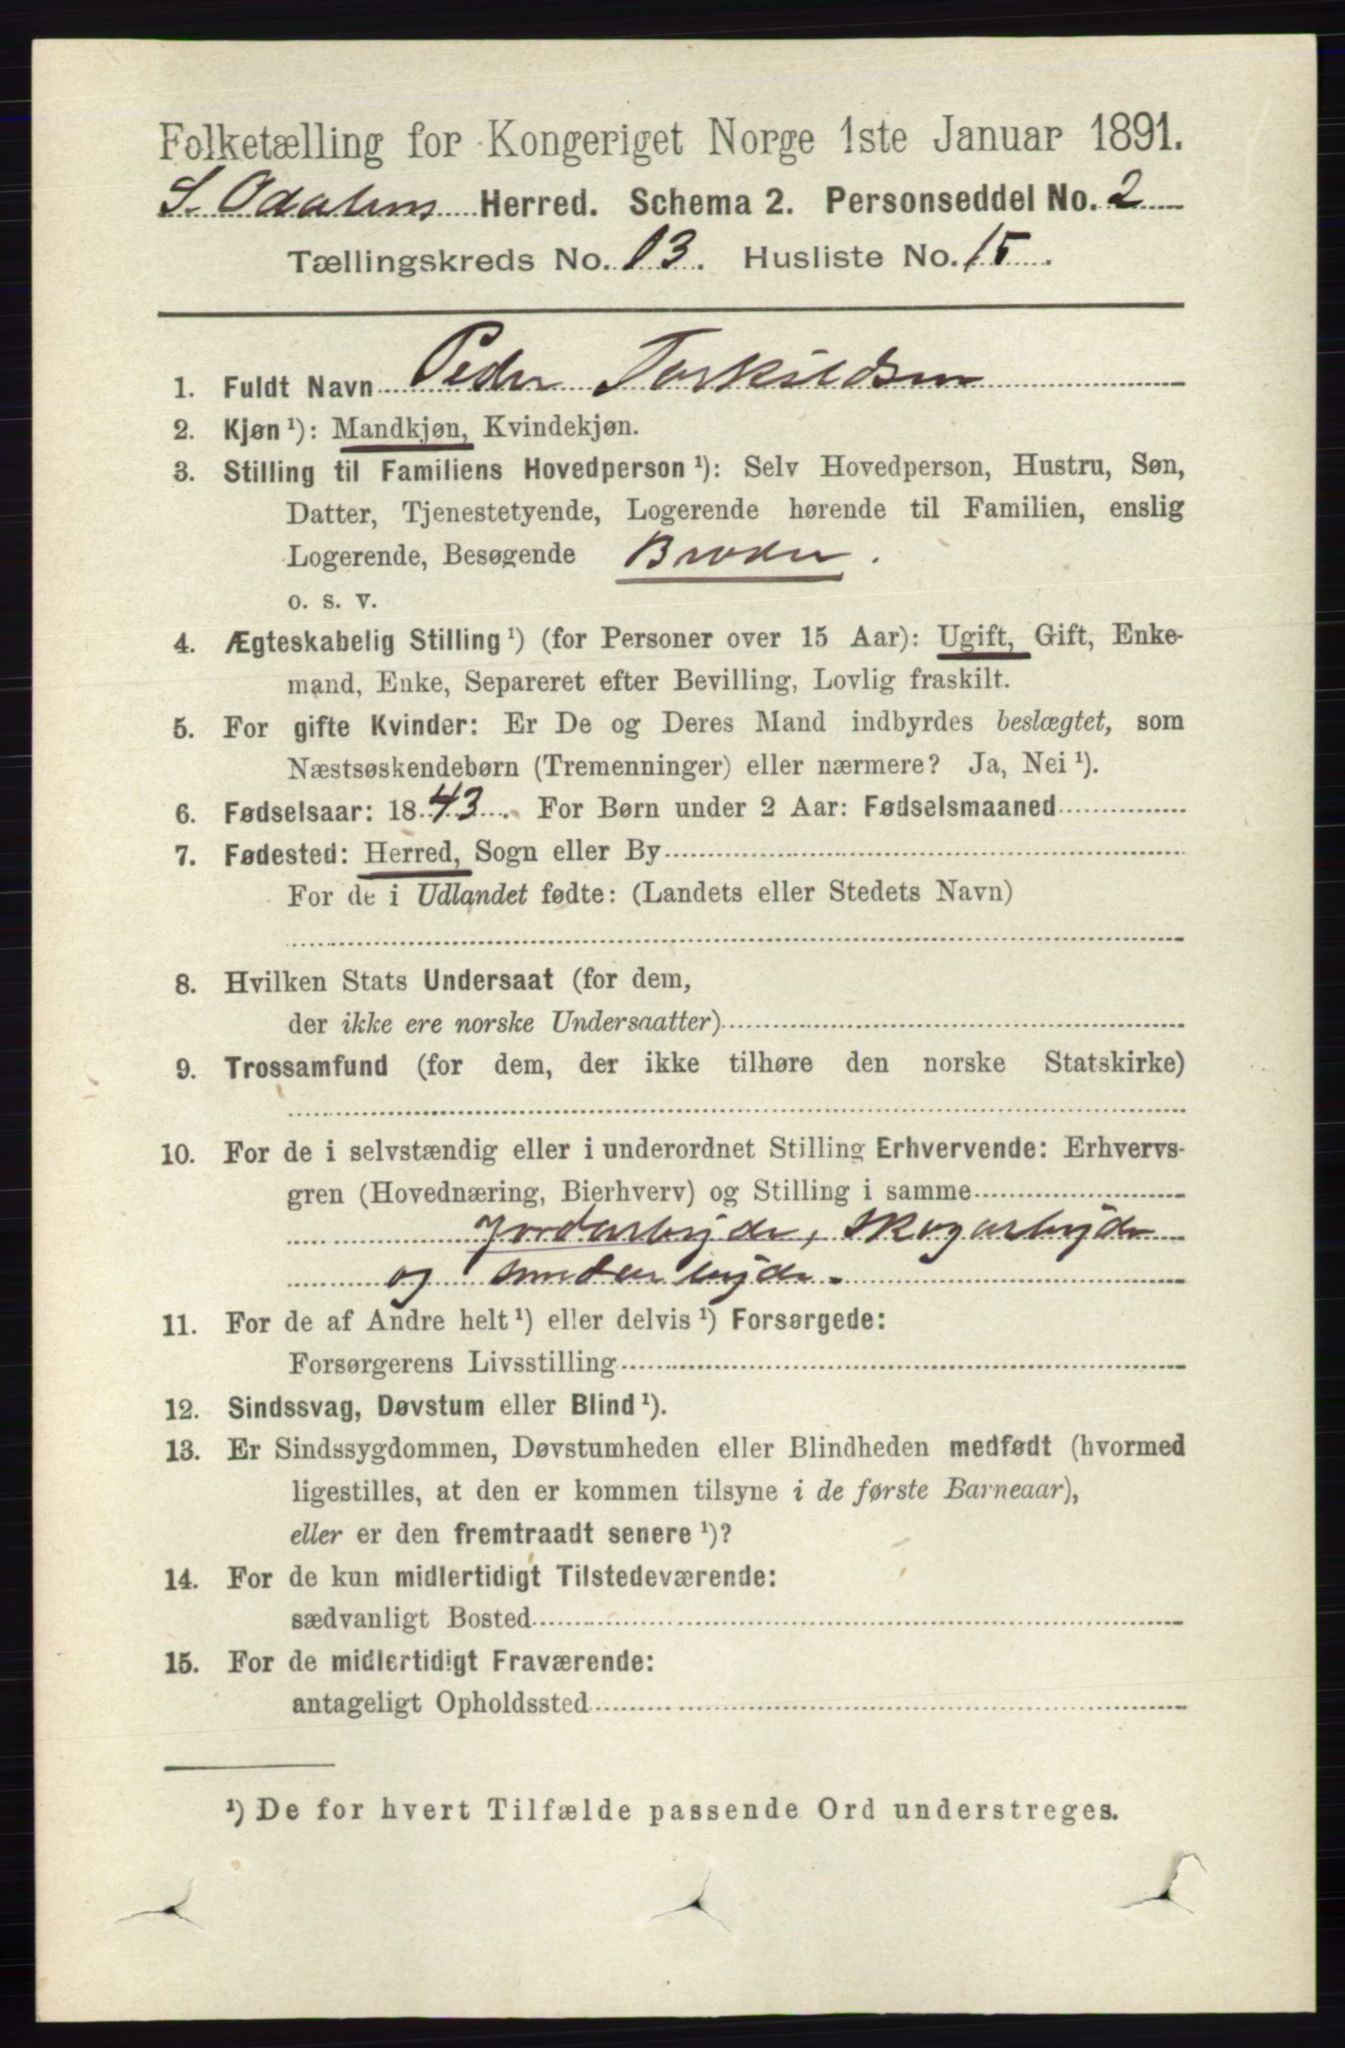 Folketælling for Kongeriget Norge 1ste Januar 1891.
S. Odalens Herred. Schema 2. Personseddel No. 2
Tællingskreds No. 13. Husliste No. 15.
1. Fuldt Navn Peder Torkildsen
2. Kjøn ¹): Mandkjøn, Kvindekjøn.
3. Stilling til Familiens Hovedperson ¹): Selv Hovedperson, Hustru, Søn,
Datter, Tjenestetyende, Logerende hørende til Familien, enslig
Logerende, Besøgende Broder.
o. s. v.
4. Ægteskabelig Stilling ¹) (for Personer over 15 Aar): Ugift, Gift, Enke-
mand, Enke, Separeret efter Bevilling, Lovlig fraskilt.
5. For gifte Kvinder: Er De og Deres Mand indbyrdes beslægtet, som
Næstsøskendebørn (Tremenninger) eller nærmere? Ja, Nei ¹).
6. Fødselsaar: 1843. For Børn under 2 Aar: Fødselsmaaned
7. Fødested: Herred, Sogn eller By
For de i Udlandet fødte: (Landets eller Stedets Navn)
8. Hvilken Stats Undersaat (for dem,
der ikke ere norske Undersaatter)
9. Trossamfund (for dem, der ikke tilhøre den norske Statskirke)
10. For de i selvstændig eller i underordnet Stilling Erhvervende: Erhvervs-
gren (Hovednæring, Bierhverv) og Stilling i samme
Jordarbejde, Skogarbejde
og Smedarbejde.
11. For de af Andre helt ¹) eller delvis ¹) Forsørgede:
Forsørgerens Livsstilling
12. Sindssvag, Døvstum eller Blind ¹).
13. Er Sindssygdommen, Døvstumheden eller Blindheden medfødt (hvormed
ligestilles, at den er kommen tilsyne i de første Barneaar),
eller er den fremtraadt senere ¹)?
14. For de kun midlertidigt Tilstedeværende:
sædvanligt Bosted
15. For de midlertidigt Fraværende:
antageligt Opholdssted
¹) De for hvert Tilfælde passende Ord understreges.